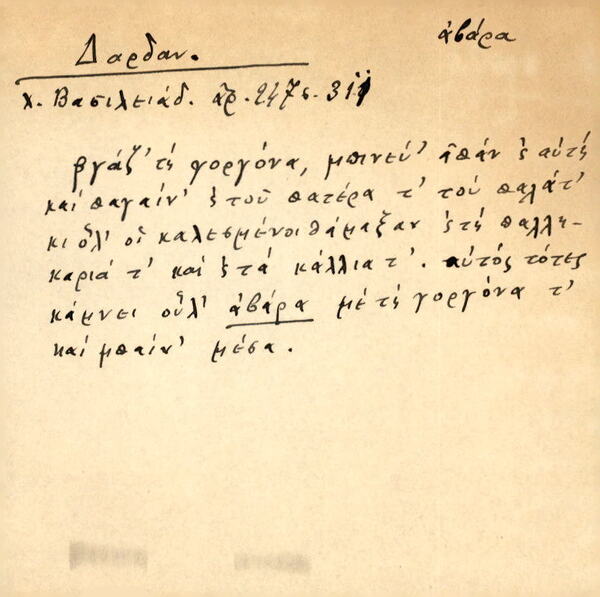 ἀβάρα
Δαρδαν.
Χ. Βασιλειάδ. ἀρ. 247 s. 311
βγάζ' τὴ γοργόνα, μπινεύ' ἀπάν ς αὐτὴ
καὶ παγαίν' ς τοῦ πατέρα τ' τοὺ παλάτ'
κι οὗλ' οἱ καλεσμένοι θάμαξαν ς τὴ παλλη-
καριά τ' καὶ ς τὰ κάλλια τ'. αὐτὸς τότες
κάμνει οὗλ' ἀβάρα μὲ τὴ γοργόνα τ'
καὶ μπαίν' μέσα.